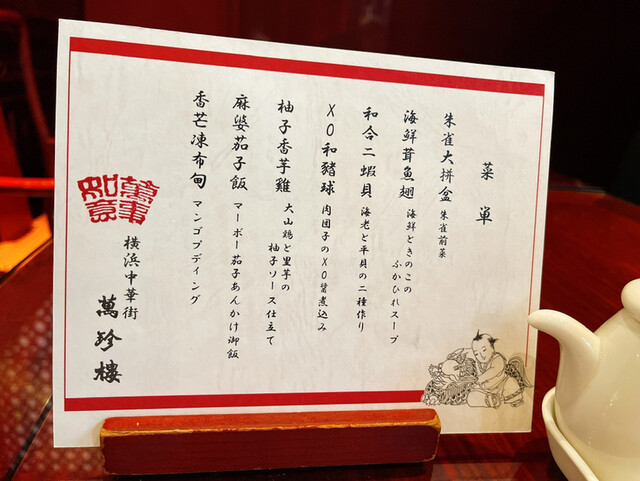 菜単
朱雀大拼盆 朱雀前菜
海鮮茸魚翅 海鮮ときのこの
ふかひれスープ
和合二蝦貝 海老と平貝の二種作り
XO和豬球 肉団子のXO醤煮込み
柚子香芋雞 大山鶏と里芋の
柚子ソース仕立て
麻婆茄子飯 マーボー茄子あんかけ御飯
香芒凍布甸 マンゴプディング
萬事
如意
横浜中華街
萬珍樓